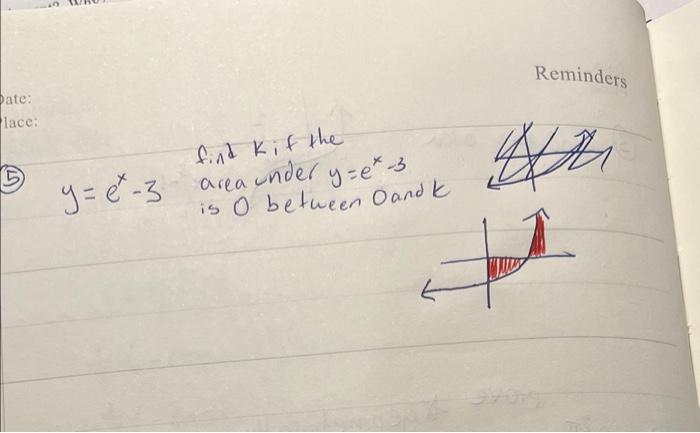 Reminders
Date:
Place:
5
y = eˣ - 3
find k if the
area under y = eˣ - 3
is 0 between 0 and k